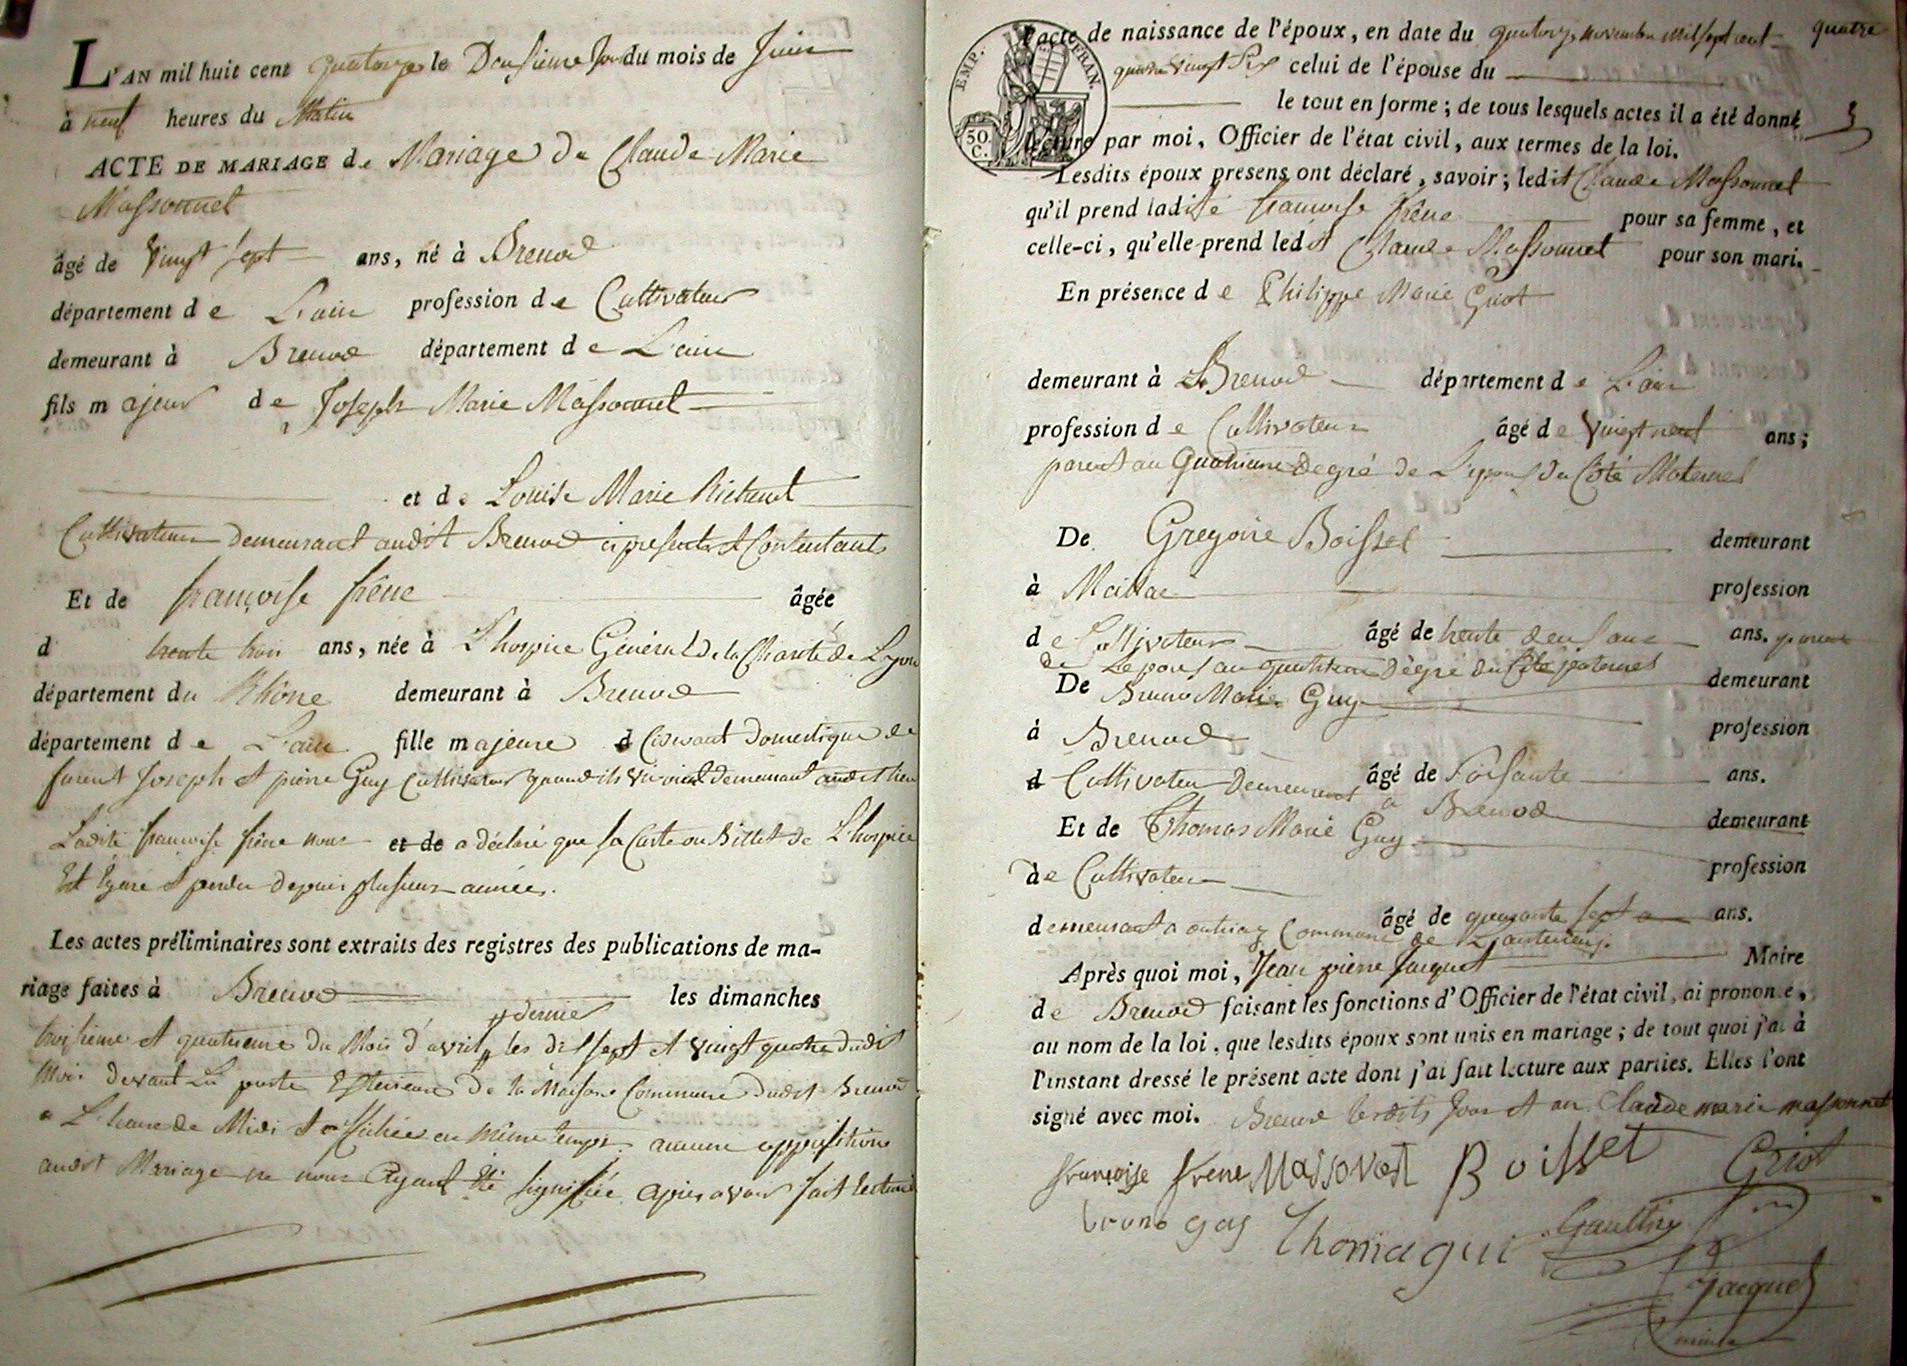 L'AN mil huit cent quatorze le Deusieme Jour du mois de Juin
à neuf heures du Matin
ACTE DE MARIAGE de Mariage de Claude Marie
Massonnet
âgé de Vingt Sept ans, né à Brenod
département de L'ain profession de Cultivateur
demeurant à Brenod département de L'ain
fils majeur de Joseph Marie Massonnet
et de Louise Marie
Cultivateur demeurant audit Brenod ci presents et Contentants
Et de françoise frêne âgée
d trente trois ans, née à L'hospice Général de la Charité de Lyon
département du Rhône demeurant à Brenod
département de L'ain fille majeure d Cidevant Domestique de
furent Joseph et pierre Guy Cultivateur quand ils vivoient demeurant audit lieu
Ladite francoise frêne nous et de a déclaré que sa Carte ou Billet de L'hospice
Est Egaré et perdu depuis plusieurs année.
Les actes préliminaires sont extraits des registres des publications de ma-
riage faites à Brenod les dimanches
dernier
troisieme et quatrieme du Mois d'avril les dix sept et vingt quatre dudit
Mois devant La porte Exterieure de la Maison Commune dudit Brenod
a L'heure de Midi et affichées en même temps aucune opposition
audit Mariage ne nous Ayant été signifiée après avoir fait lecture
EMP. FRAN.
50 C.
l'acte de naissance de l'époux, en date du quatorze novembre mil sept cent quatre
quatre vingt Six celui de l'épouse du
le tout en forme ; de tous lesquels actes il a été donné
lecture par moi, Officier de l'état civil, aux termes de la loi.
Lesdits époux presens ont déclaré, savoir ; ledit Claude Massonnet
qu'il prend ladite francoise frêne pour sa femme, et
celle-ci, qu'elle prend ledit Claude Massonnet pour son mari.
En présence de Philippe Marie Griot
demeurant à Brenod département de L'ain
profession de Cultivateur âgé de Vingt neuf ans ;
parent au Quatrieme degré de L'epoux du Côté Maternel
De Gregoire Boisset demeurant
à profession
de Cultivateur âgé de trente deux ans ans. parent
de Lepoux au quatrieme Degré du Côté paternel
De Bruno Marie Guy demeurant
à Brenod profession
d Cultivateur Demeurant à Brenod âgé de Soisante ans.
Et de Thomas Marie Guy demeurant
de Cultivateur profession
demeurant a Commune de âgé de quarante sept ans.
Après quoi moi, Jean pierre Jacquet Maire
de Brenod faisant les fonctions d'Officier de l'état civil, ai prononcé,
au nom de la loi, que lesdits époux sont unis en mariage ; de tout quoi j'ai à
l'instant dressé le présent acte dont j'ai fait lecture aux parties. Elles l'ont
signé avec moi. Brenod lesdits Jour et an Claude marie massonnet
françoise frene Massonet Boisset Griot
bruno guy Thoma gui Gauthier
Jacquet
maire